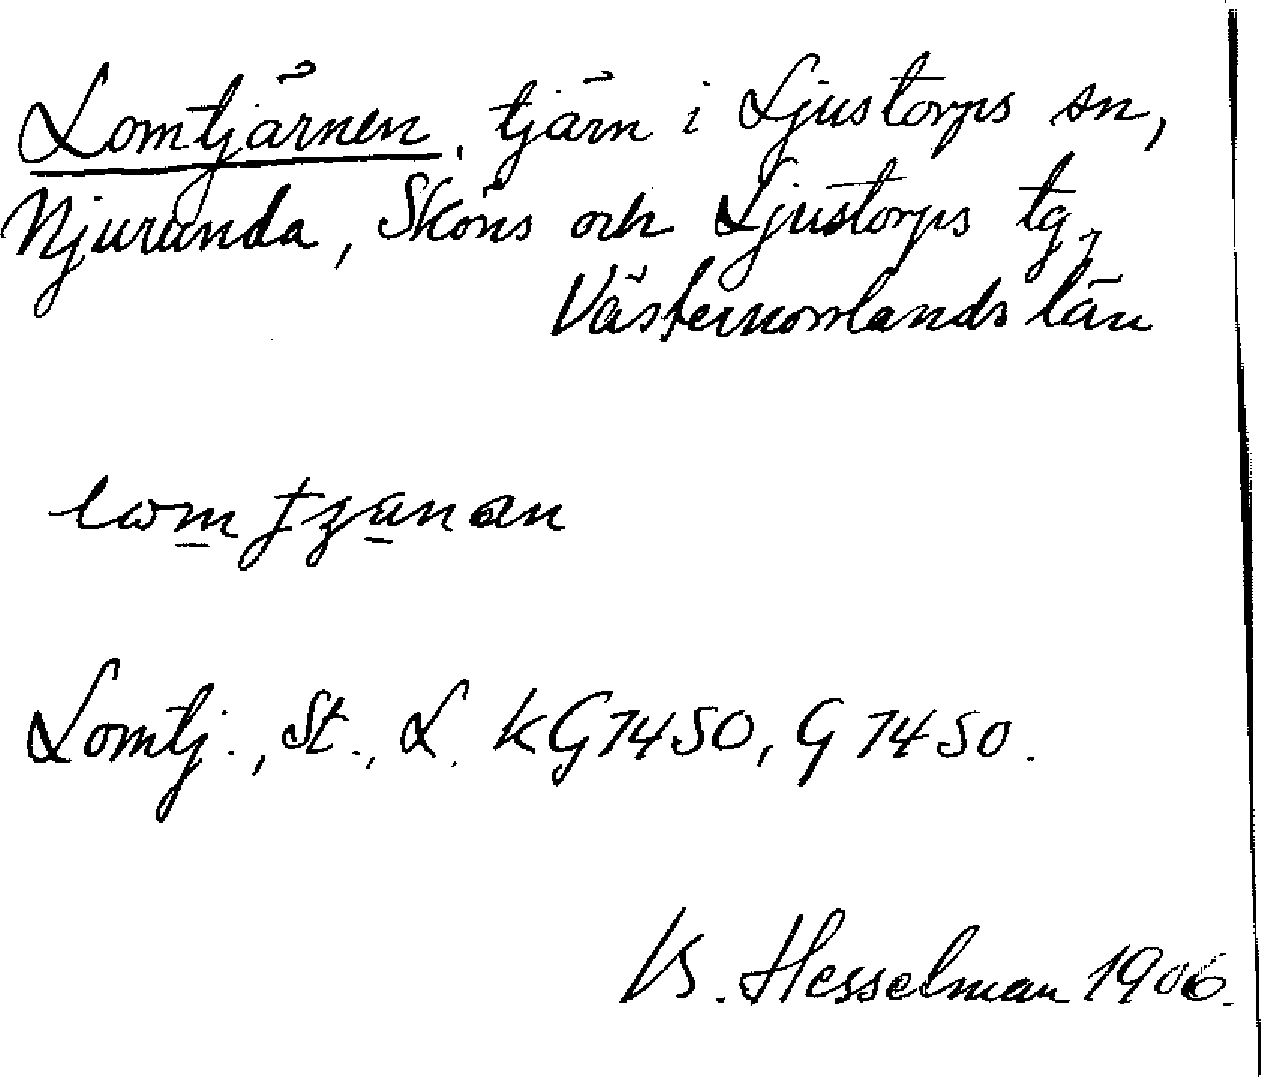 Lomtjärnen, tjärn i Ljustorps sn,
Njurunda, Sköns och Ljustorps tg,
Västernorrlands län
Lomtj., St., L. KG7450, G 7450.
B. Hesselman 1906.